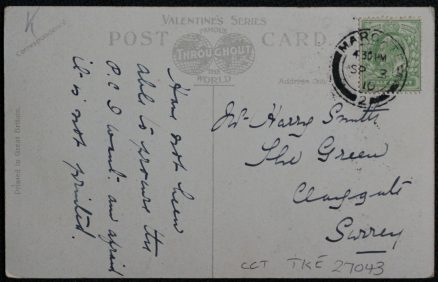 K
Correspondence
VALENTINE'S SERIES
FAMOUS
POST CARD
THROUGHOUT
THE
WORLD
Address Only
Printed in Great Britain.
Have not been
able to procure the
P.C I want am afraid
it is not printed.
Mr Harry Smith
The Green
Claygate
Surrey
MARG
4.30 PM
SP 3
10
2
CCT TKE 27043